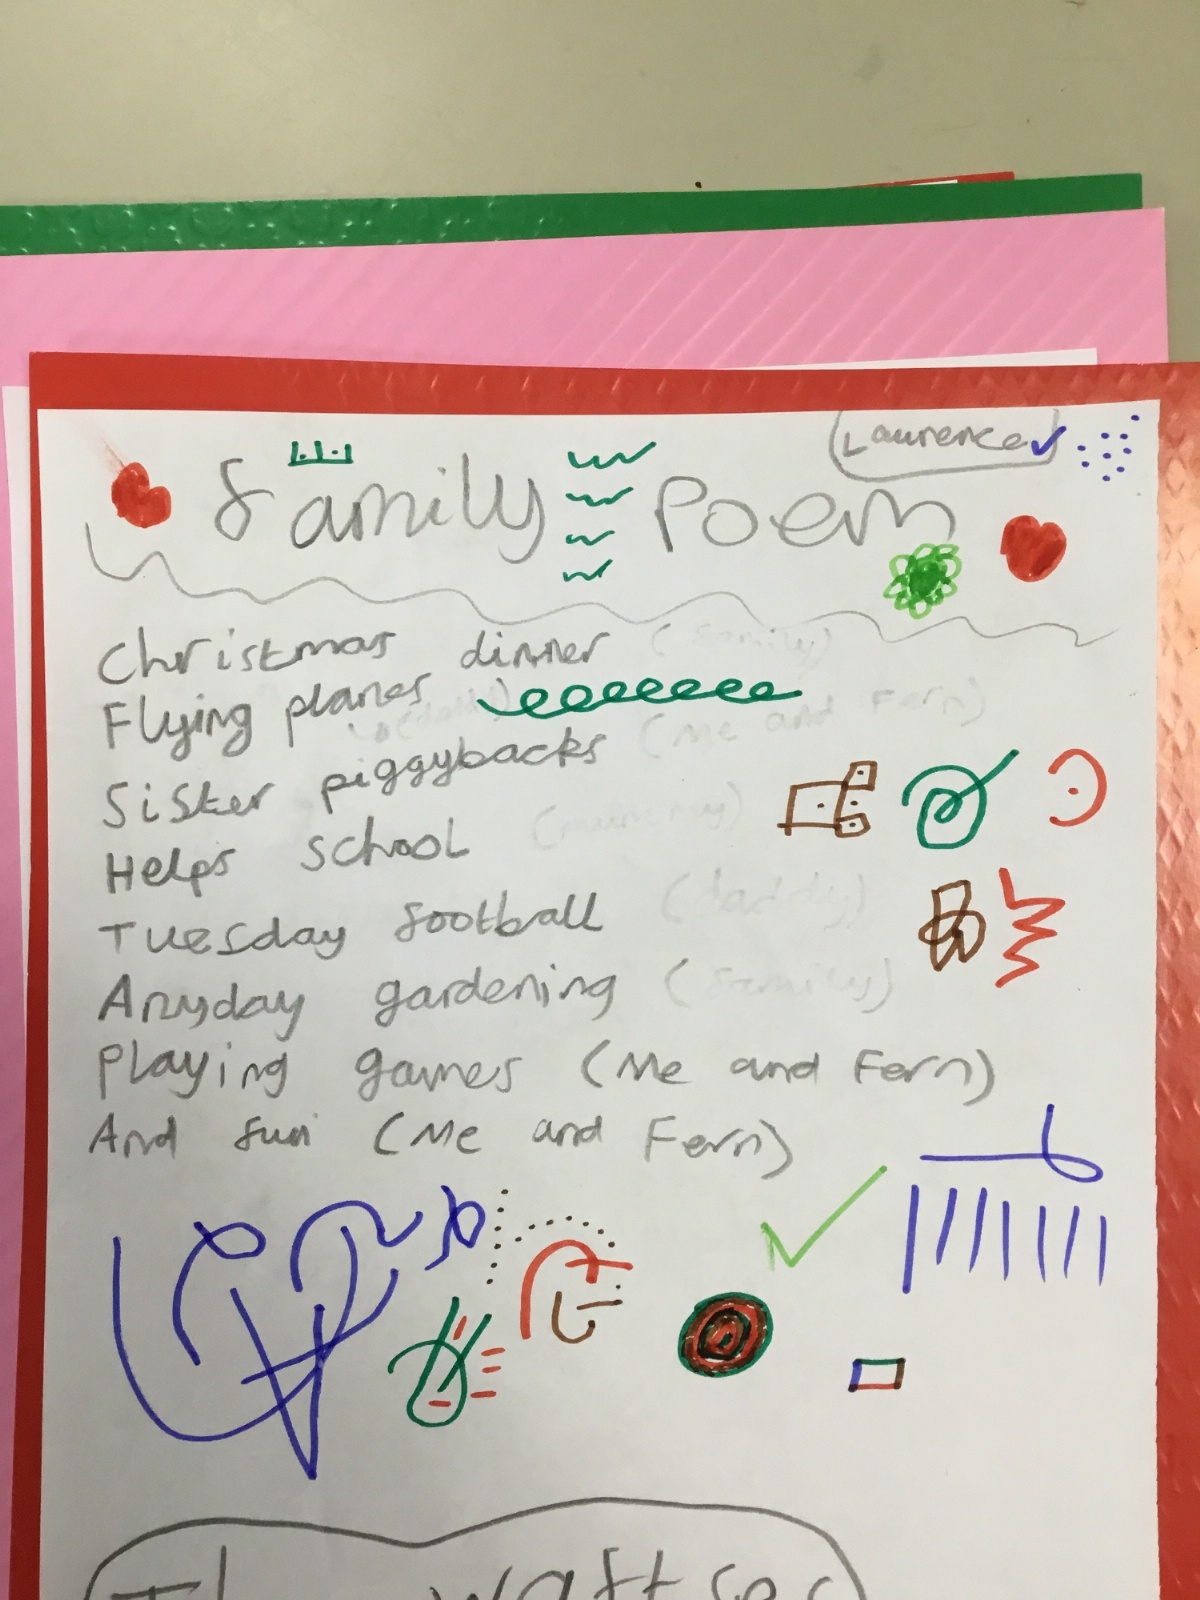 Laurence
Family Poem
Christmas dinner (family)
Flying planes (daddy)
Sister piggybacks (Me and Fern)
Helps school (mummy)
Tuesday football (daddy)
Anyday gardening (family)
Playing games (Me and Fern)
And fun (Me and Fern)